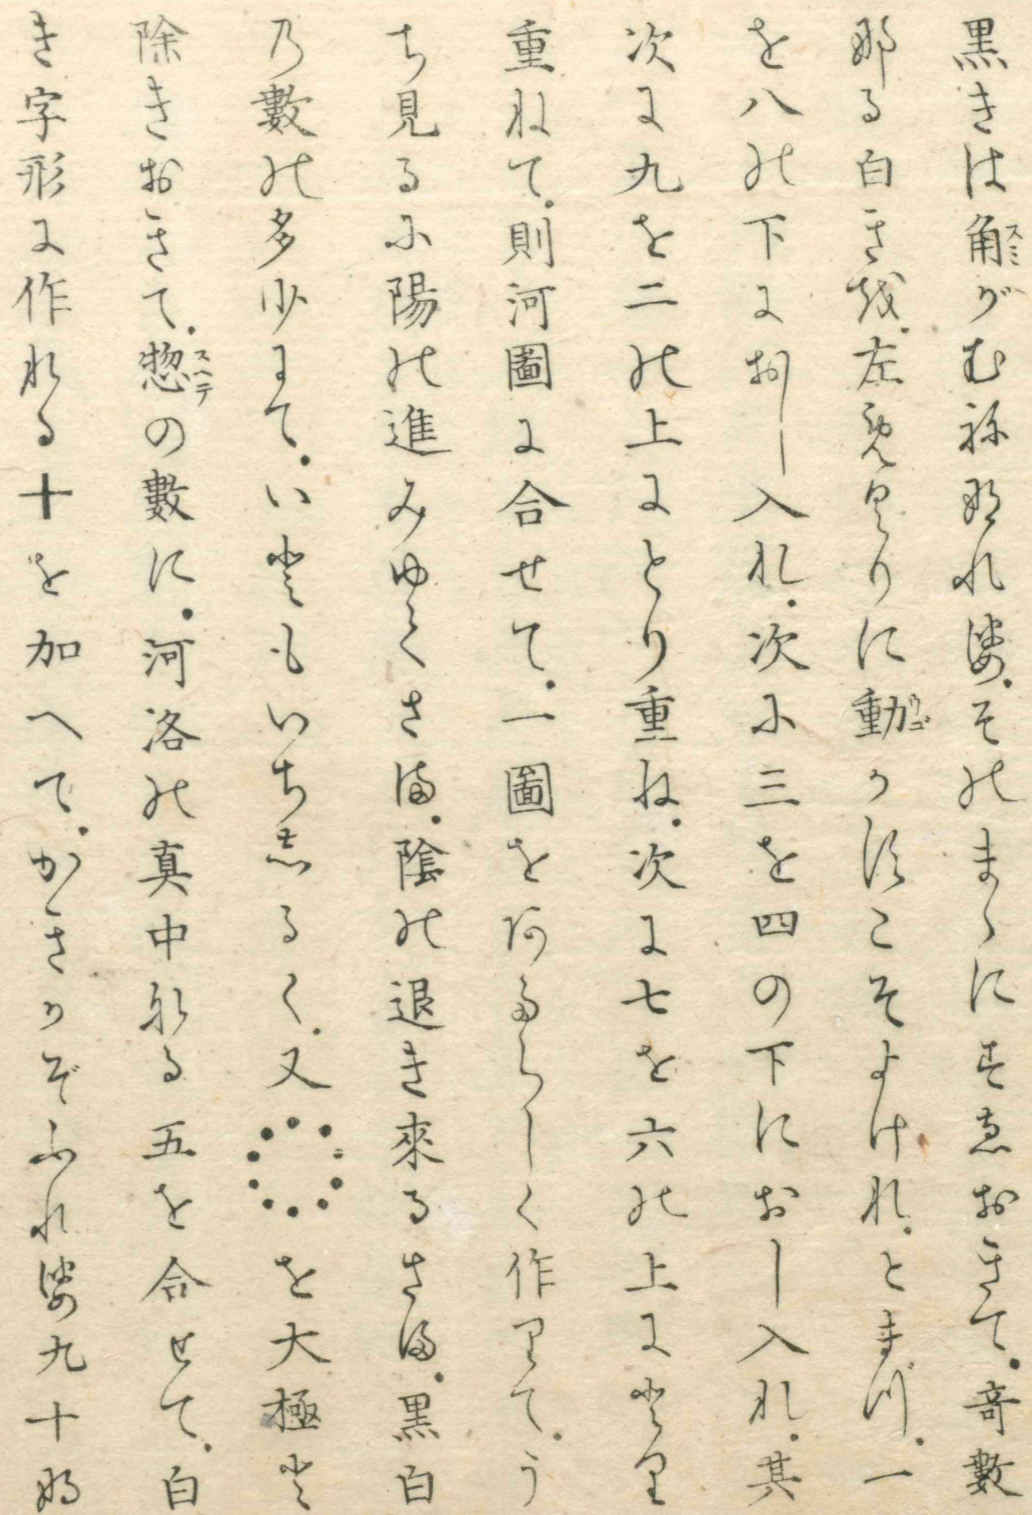 黒きは角がむねなれば.そのまゝにすゑおきて.奇數
なる白きを.左めぐりに動かすこそよけれ.とまづ.一
を八の下におし入れ.次に三を四の下におし入れ.其
次に九を二の上にとり重ね.次に七を六の上にとり
重ねて.則河圖に合せて.一圖をあたらしく作りて.う
ち見るに陽の進みゆくさま.陰の退き來るさま.黒白
乃數の多少にて.いともいちしるく.又を大極と
除きおきて.惣の數に.河洛の真中なる五を合せて.白
き字形に作れる十を加へて.かきかぞふれば九十な